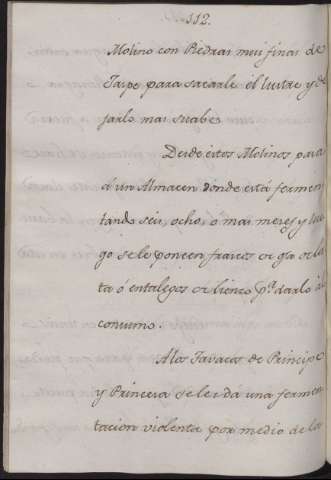 112.
Molino con Piedras mui finas de
Jaspe para sacarle el lustre y de
jarlo mas suabe
Desde estos Molinos para
á un Almacen donde está fermen
tando seis, ocho, ó mas meses y lue
go se le ponen frascos de
ta ó entalegos de lienzo p.ª darlo al
consumo.
A los Tavacos de Principe
y Princesa se les dá una fermen
tacion violenta por medio de la